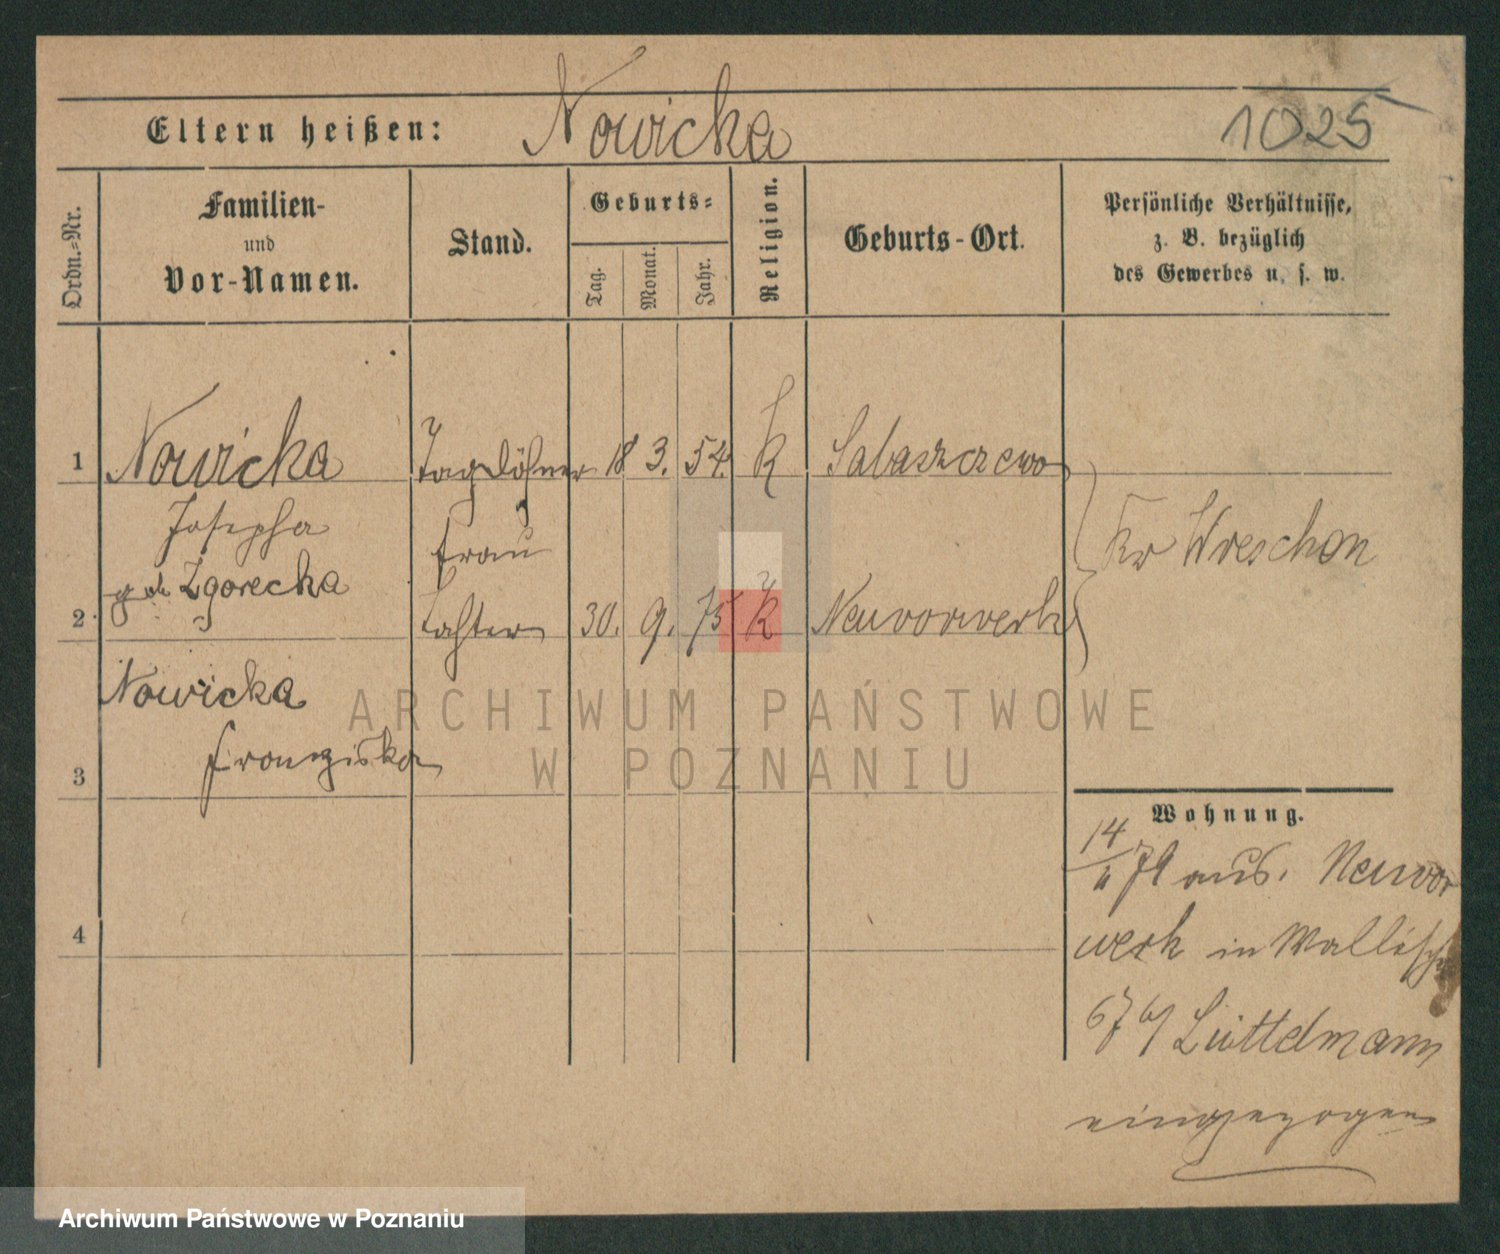 Eltern heißen: Nowicka 1025
Ordn.-Nr.
Familien-
und
Vor-Namen.
Stand.
Geburts-
Tag.
Monat.
Jahr.
Religion.
Geburts-Ort.
Persönliche Verhältnisse,
z. B. bezüglich
des Gewerbes u. s. w.
1 Nowicka Taglöhner 18 3. 54. k Sabaszczewo
Josepha Frau Kr Wreschen
geb Zgorecka
2 Tochter 30. 9. 75 k Neuvorwerk
Nowicka
Franziska
3
4
Wohnung.
14/11 79 aus. Neuvor
werk in Wallisch
67 b/ Lüttelmann
eingezogen
ARCHIWUM PAŃSTWOWE
W POZNANIU
Archiwum Państwowe w Poznaniu